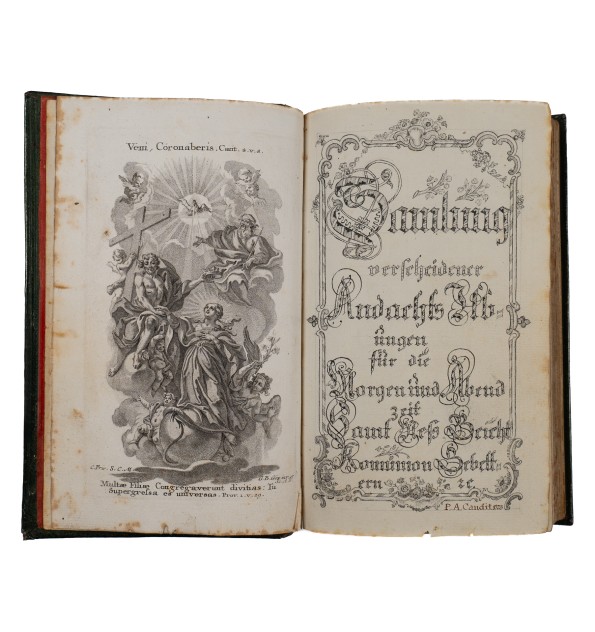 Veni, Coronaberis. Cant. 4. v. 8.
C. Priv. S. C. M.
Multæ Filiæ Congregaverunt divitias: Tu
Supergressa es universus. Prov. 1. v. 29.
Samlung
verscheidener
Andachts Üb-
ungen
für die
Morgen und Abend
zeit
Samt Meß Beicht
Kommunion Gebett-
ern ec. ec.
P. A. Candit